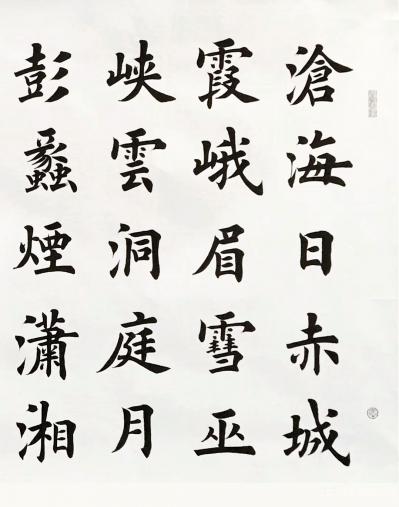 滄海日赤城
霞峨眉雪巫
峽雲洞庭月
彭蠡煙瀟湘